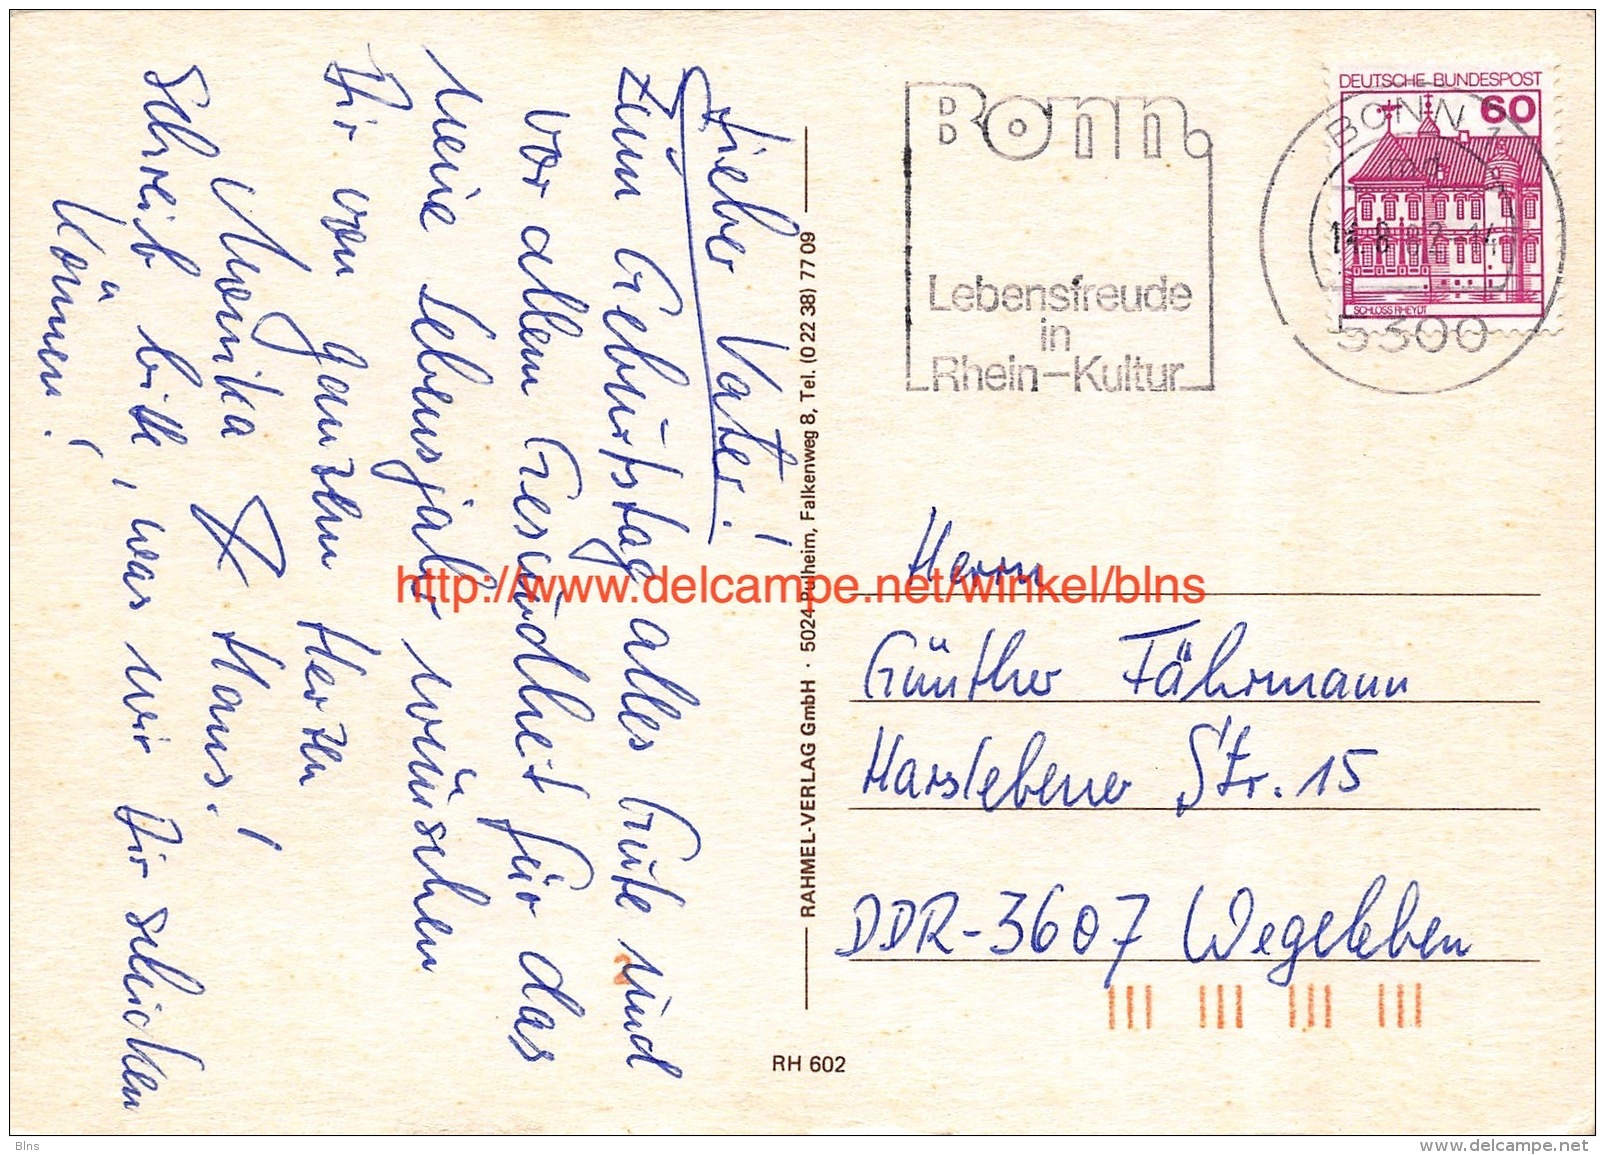 Lieber Vater!
Zum Geburtstag alles Gute und
vor allem Gesundheit für das
neue Lebensjahr wünschen
Dir von ganzem Herzen
Monika & Hans!
Schreib bitte, was wir Dir schicken
können!
RAHMEL-VERLAG GmbH · 5024 Pulheim, Falkenweg 8, Tel. (0 22 38) 77 09
RH 602
Bonn.
Lebensfreude
in
Rhein-Kultur
DEUTSCHE BUNDESPOST
60
SCHLOSS RHEYDT
BONN
5300
Herrn
Günther Fährmann
Harslebener Str. 15
DDR-3607 Wegeleben
http://www.delcampe.net/winkel/blns
Blns
www.delcampe.net